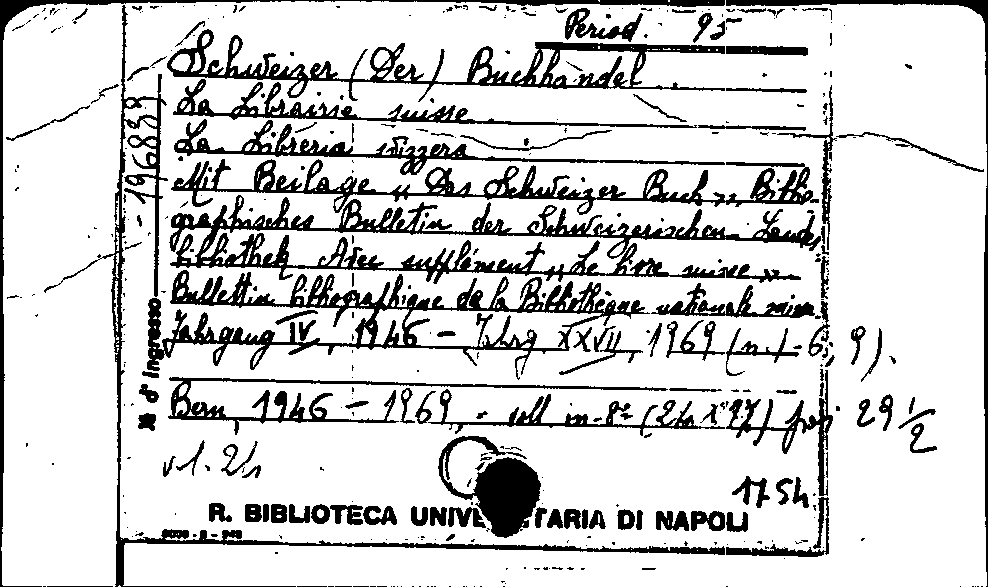 Period. 95
Schweizer (Der) Buchhandel
La Librairie suisse
La Libreria svizzera
Mit Beilage „ Das Schweizer Buch „, Biblio-
graphisches Bulletin der Schweizerischen Landes
bibliothek Avec supplément „ Le livre suisse „
Bulletin bibliographique de la Bibliothèque nationale suisse
Jahrgang IV, 1946 - Jahrg XXVII, 1969 (n. 1-6; 9).
Bern, 1946 - 1969, voll in-8º
29 1/2
v 1. 24
1754
R. BIBLIOTECA UNIVE TARIA DI NAPOLI
№ d'ingresso - 196889